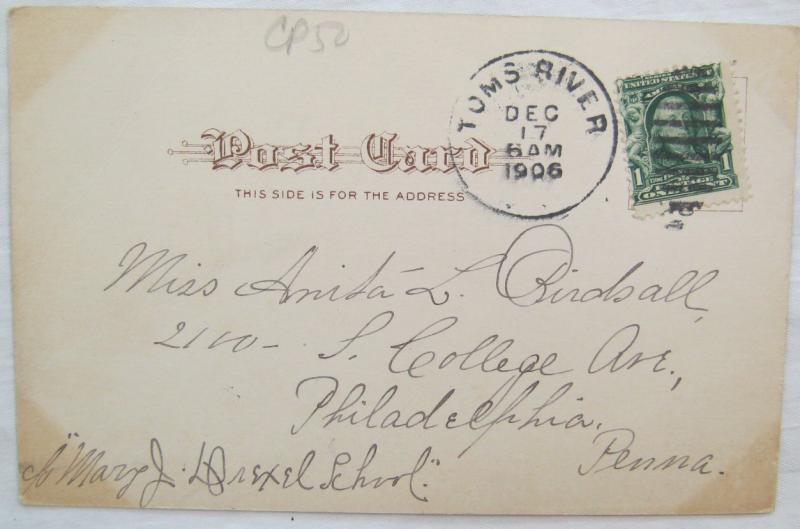 CP50
TOMS RIVER
DEC
17
6AM
1906
SERIES 1902
UNITED STATES OF
AMERICA
1 1
ONE CENT
Post Card
THIS SIDE IS FOR THE ADDRESS
Miss Anita L. Birdsall,
2100- S. College Ave.,
Philadelphia.
Penna.
c/o "Mary J. Drexel School."